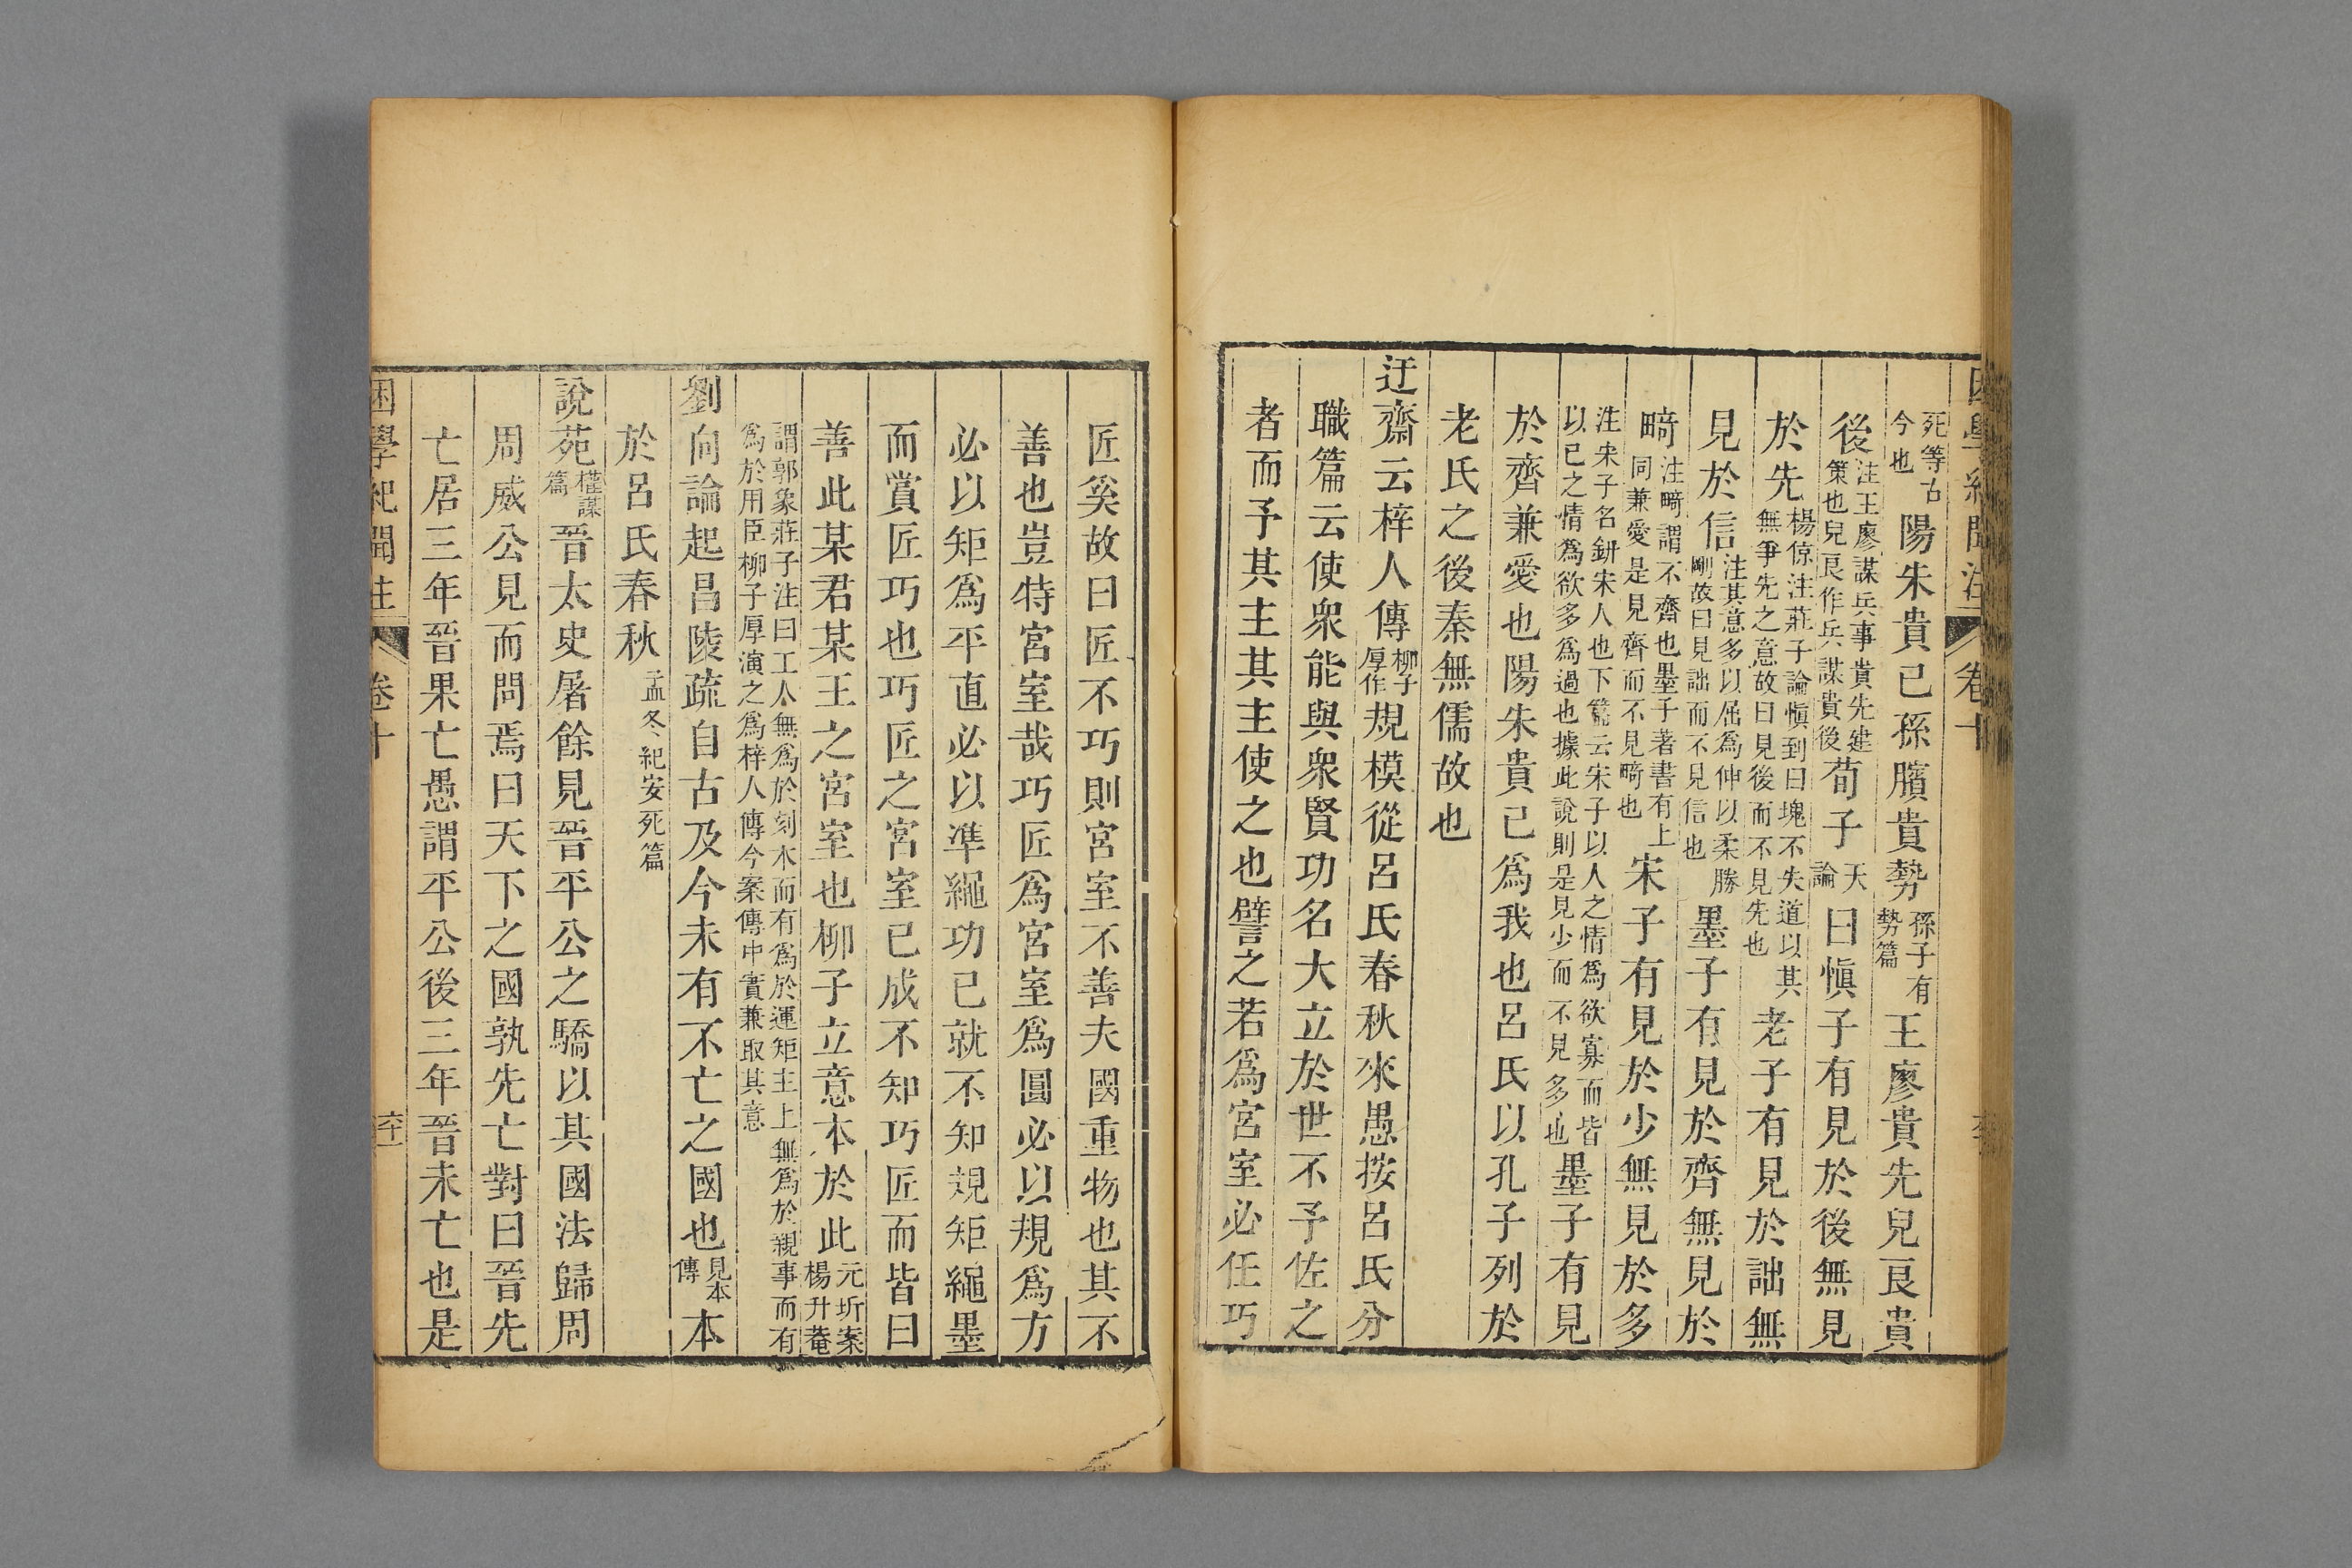 困學紀聞注 卷十
死等古今也陽朱貴已孫臏貴勢孫子有勢篇王廖貴先兒良貴
後注王廖謀兵事貴先建策也兒良作兵謀貴後荀子天論曰愼子有見於後無見
於先楊倞注莊子論愼到曰塊不失道以其無爭先之意故曰見後而不見先也老子有見於詘無
見於信注其意多以屈爲伸以柔勝剛故曰見詘而不見信也墨子有見於齊無見於
畸注畸謂不齊也墨子著書有上同兼愛是見齊而不見畸也宋子有見於少無見於多
注宋子名鈃宋人也下篇云宋子以人之情爲欲寡而皆以已之情爲欲多爲過也據此說則是見少而不見多也墨子有見
於齊兼愛也陽朱貴已爲我也呂氏以孔子列於
老氏之後秦無儒故也
迂齋云梓人傳柳子厚作規模從呂氏春秋來愚按呂氏分
職篇云使衆能與衆賢功名大立於世不予佐之
者而予其主其主使之也譬之若爲宮室必任巧
匠奚故曰匠不巧則宮室不善夫國重物也其不
善也豈特宮室哉巧匠爲宮室爲圓必以規爲方
必以矩爲平直必以準繩功已就不知規矩繩墨
而賞匠巧也巧匠之宮室已成不知巧匠而皆曰
善此某君某王之宮室也柳子立意本於此元圻案楊升菴
謂郭象莊子注曰工人無爲於刻木而有爲於運矩主上無爲於親事而有爲於用臣柳子厚演之爲梓人傳今案傳中實兼取其意
劉向論起昌陵疏自古及今未有不亡之國也見本傳本
於呂氏春秋孟冬紀安死篇
說苑權謀篇晉太史屠餘見晉平公之驕以其國法歸周
周威公見而問焉曰天下之國孰先亡對曰晉先
亡居三年晉果亡愚謂平公後三年晉未亡也是
困學紀聞注 卷十